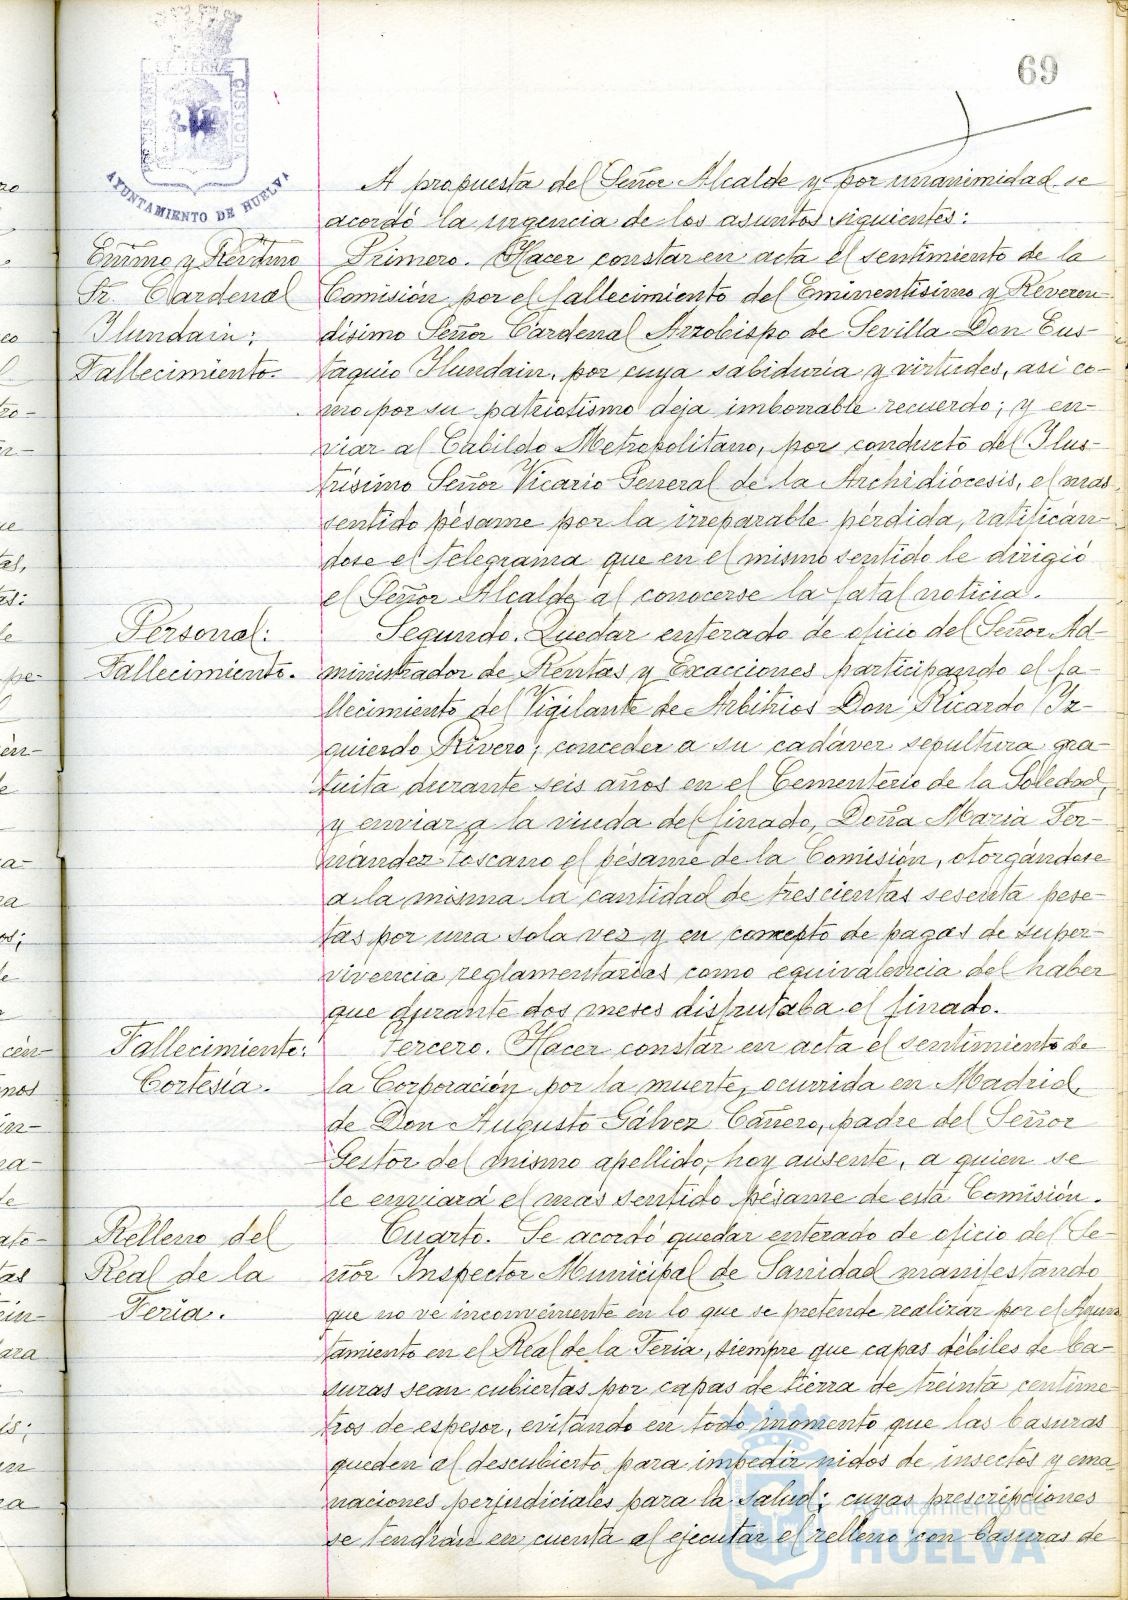 69
PORTUS MARIS ET TERRÆ CUSTODIA
AYUNTAMIENTO DE HUELVA
A propuesta del Señor Alcalde y por unanimidad se
acordó la urgencia de los asuntos siguientes:
Emimo y Revdmo
Sr. Cardenal
Ilundain:
Fallecimiento.
Primero. Hacer constar en acta el sentimiento de la
Comisión por el fallecimiento del Eminentísimo y Reveren-
dísimo Señor Cardenal Arzobispo de Sevilla Don Eus-
taquio Ilundain, por cuya sabiduría y virtudes, asi co-
mo por su patriotismo deja imborrable recuerdo; y en-
viar al Cabildo Metropolitano, por conducto del Ilus-
trísimo Señor Vicario General de la Archidiócesis, el mas
sentido pésame por la irreparable pérdida, ratificán-
dose el telegrama que en el mismo sentido le dirigió
el Señor Alcalde al conocerse la fatal noticia.
Personal:
Fallecimiento.
Segundo. Quedar enterado de oficio del Señor Ad-
ministrador de Rentas y Exacciones participando el fa-
llecimiento del Vigilante de Arbitrios Don Ricardo Iz-
quierdo Rivero; conceder a su cadáver sepultura gra-
tuita durante seis años en el Cementerio de la Soledad,
y enviar a la viuda del finado, Doña Maria Fer-
nández Toscano el pésame de la Comisión, otorgándose
a la misma la cantidad de trescientas sesenta pese-
tas por una sola vez y en concepto de pagas de super-
vivencia reglamentarias como equivalencia del haber
que durante dos meses disfrutaba el finado.
Fallecimiento:
Cortesía.
Tercero. Hacer constar en acta el sentimiento de
la Corporación por la muerte, ocurrida en Madrid,
de Don Augusto Gálvez Cañero, padre del Señor
Gestor del mismo apellido, hoy ausente, a quien se
le enviará el mas sentido pésame de esta Comisión.
Relleno del
Real de la
Feria.
Cuarto. Se acordó quedar enterado de oficio del Se-
ñor Inspector Municipal de Sanidad manifestando
que no ve inconveniente en lo que se pretende realizar por el Ayun
tamiento en el Real de la Feria, siempre que capas débiles de ba-
suras sean cubiertas por capas de tierra de treinta centíme-
tros de espesor, evitándo en todo momento que las basuras
queden al descubierto para impedir nidos de insectos y ema
naciones perjudiciales para la salud; cuyas prescripciones
se tendrán en cuenta al ejecutar el relleno con basuras de
Ayuntamiento de
HUELVA